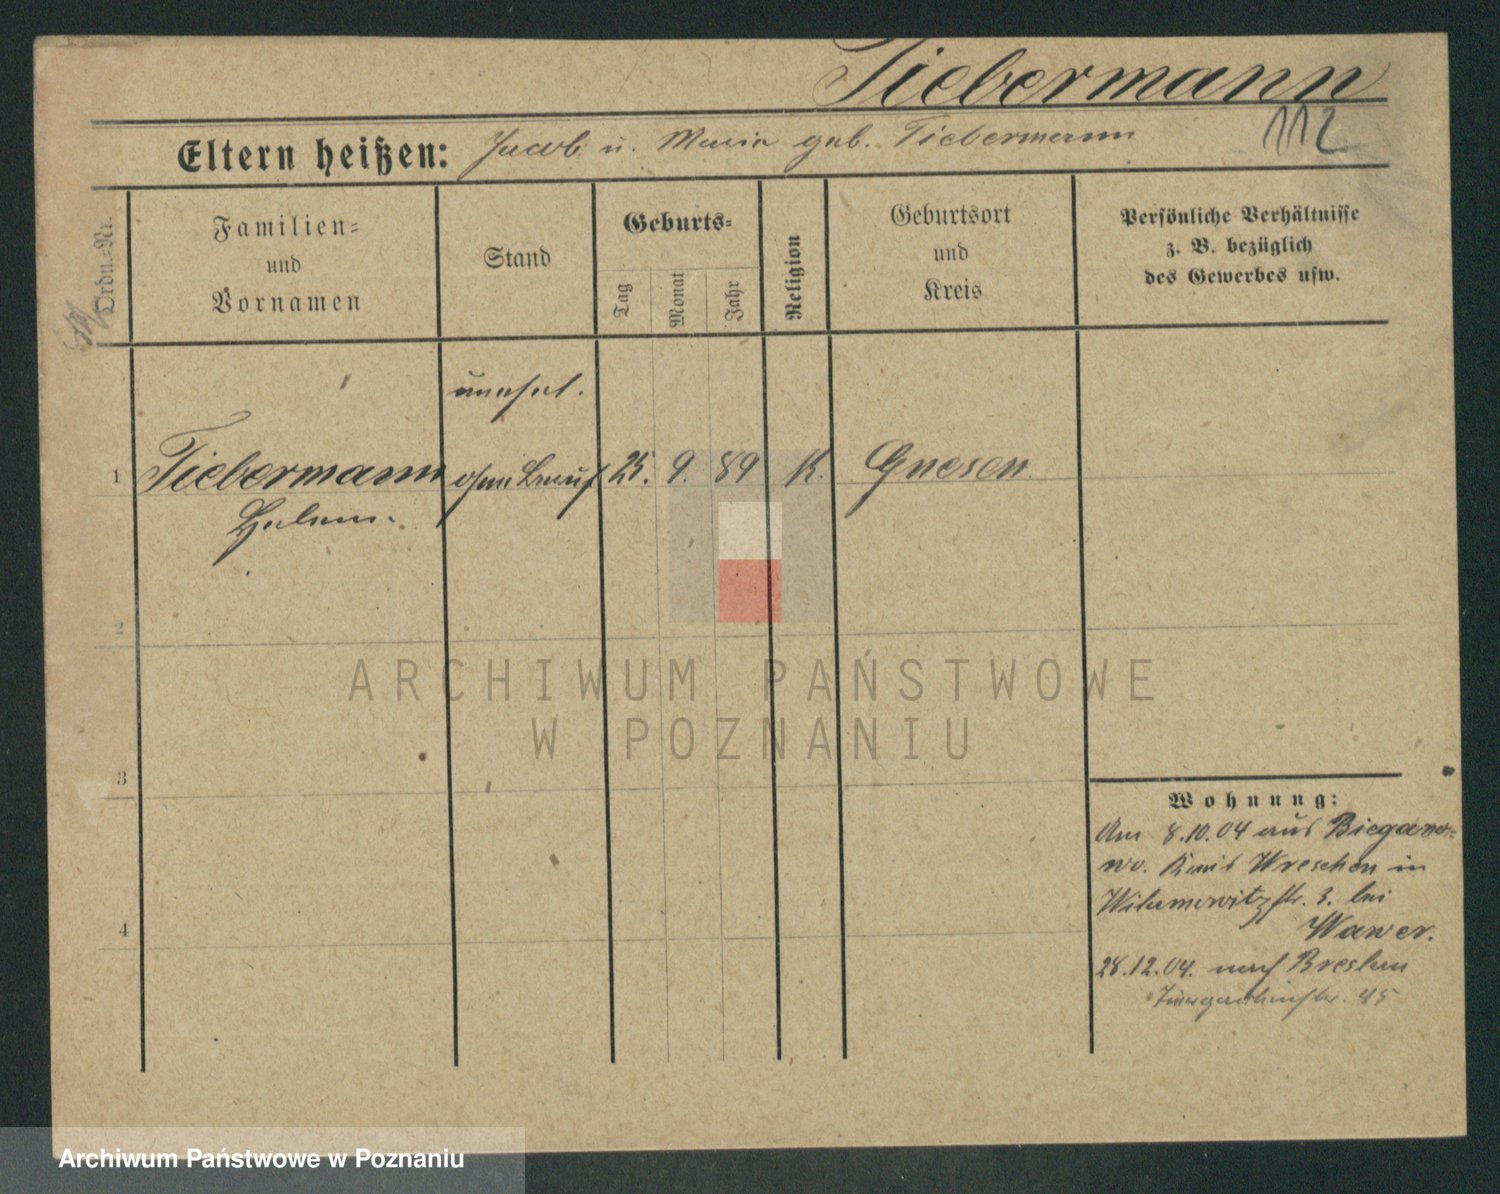 Tiebermann
112
Eltern heißen: Jacob u. Maria geb. Tiebermann
Ordn.-Nr.
Familien-
und
Vornamen
Stand
Geburts-
Tag
Monat
Jahr
Religion
Geburtsort
und
Kreis
Persönliche Verhältnisse
z. B. bezüglich
des Gewerbes usw.
unehel.
1 Tiebermann ohne Beruf 25. 9. 89 K. Gnesen
Helene
2
3
4
ARCHIWUM PAŃSTWOWE
W POZNANIU
Wohnung:
Am 8.10.04 aus Biegano-
wo. Kreis Wreschen in
3. bei
Wawer.
28.12.04. nach Breslau
45
Archiwum Państwowe w Poznaniu